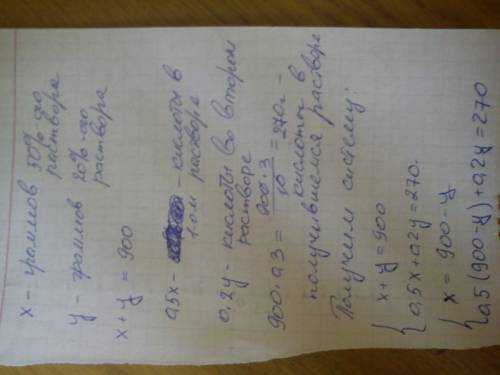 x - граммов 50%-го
раствора
y - граммов 20%-го
раствора
x + y = 900
0,5x - - кислоты в
1-ом растворе
0,2y - кислоты во втором
растворе
900·0,3 = 900·3/10 = 270г -
кислоты в
получившемся растворе
Получим систему:
{ x + y = 900
0,5x + 0,2y = 270.
{ x = 900 - y
0,5(900-y) + 0,2y = 270